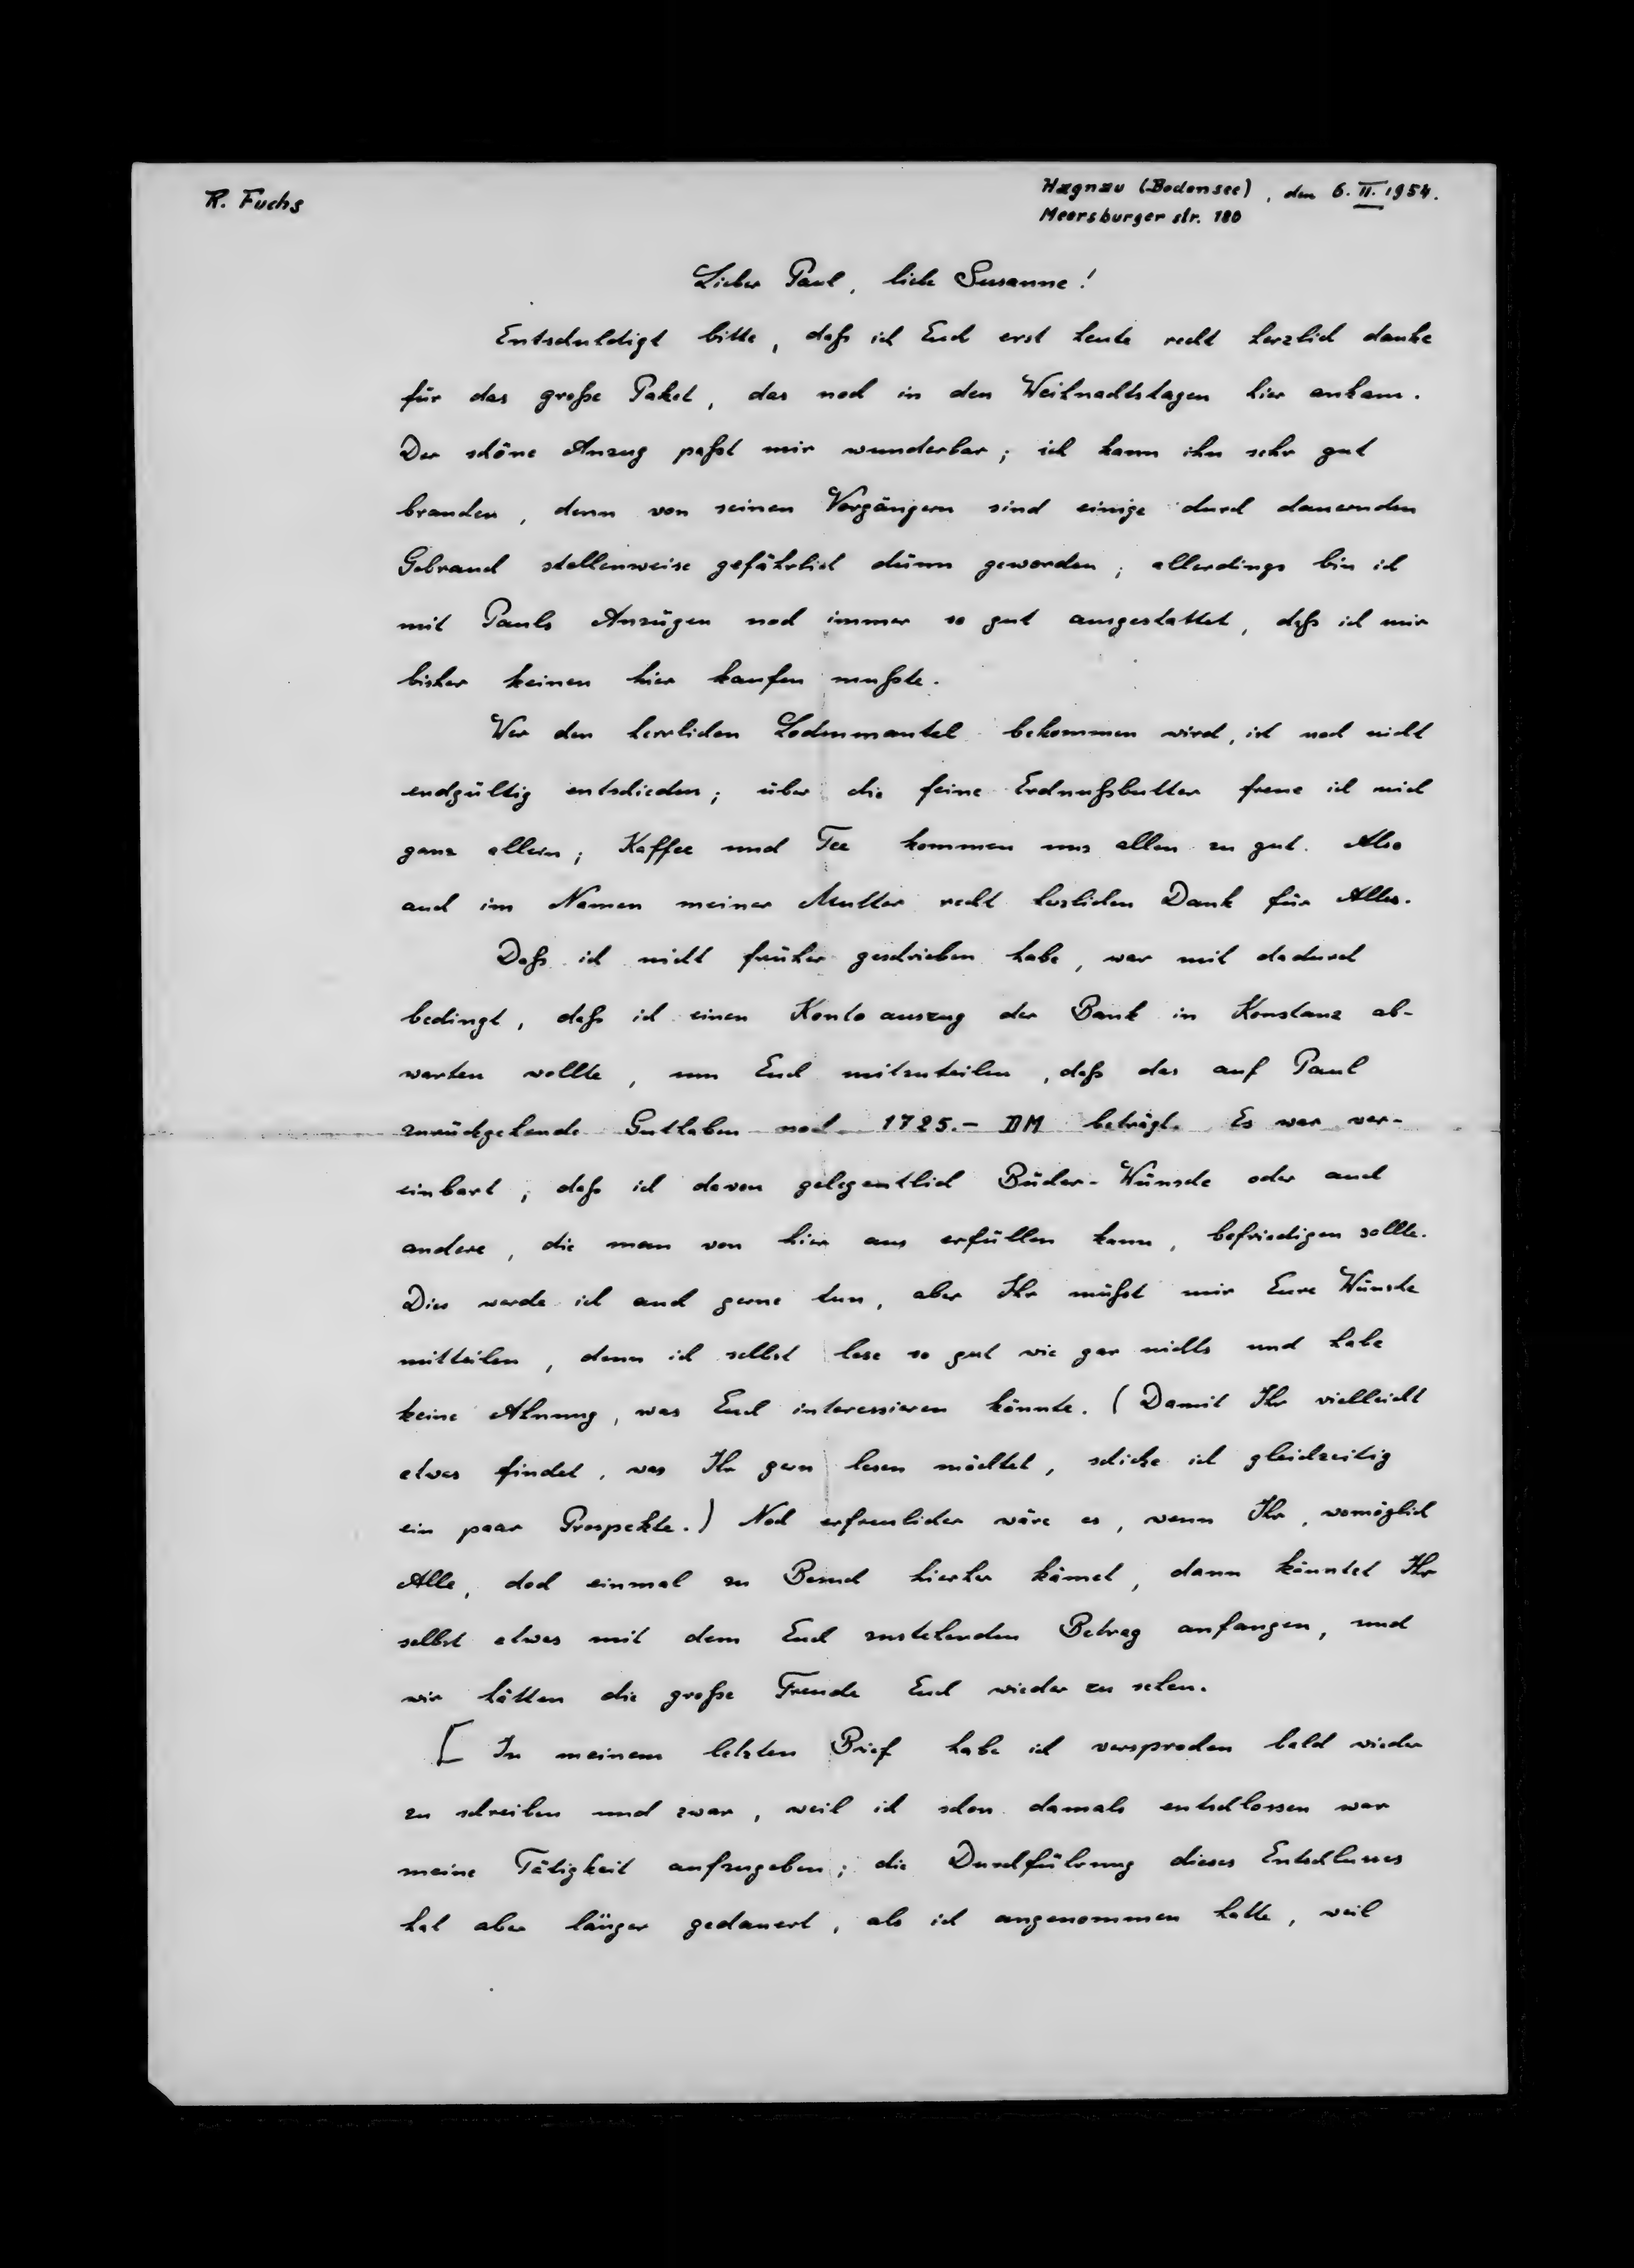 R. Fuchs
Hagnau (Bodensee), den 6. II. 1954.
Meersburger str. 180
Lieber Paul, liebe Susanne!
Entschuldigt bitte, daß ich Euch erst heute recht herzlich danke
für das große Paket, das noch in den Weihnachtstagen hier ankam.
Der schöne Anzug paßt mir wunderbar; ich kann ihn sehr gut
brauchen, denn von seinen Vorgängern sind einige durch dauernden
Gebrauch stellenweise gefährlich dünn geworden; allerdings bin ich
mit Pauls Anzügen noch immer so gut ausgestattet, daß ich mir
bisher keinen hier kaufen mußte.
Wer den herrlichen Lodenmantel bekommen wird, ist noch nicht
endgültig entschieden; über die feine Erdnußbutter freue ich mich
ganz allein; Kaffee und Tee kommen uns allen zu gut. Also
auch im Namen meiner Mutter recht herzlichen Dank für Alles.
Daß ich nicht früher geschrieben habe, war mit dadurch
bedingt, daß ich einen Kontoauszug der Bank in Konstanz ab-
warten wollte, um Euch mitzuteilen, daß das auf Paul
zurückgehende Guthaben noch 1725.- DM beträgt. Es war ver-
einbart, daß ich davon gelegentlich Bücher-Wünsche oder auch
andere, die man von hier aus erfüllen kann, befriedigen sollte.
Dies werde ich auch gerne tun, aber Ihr müßt mir Eure Wünsche
mitteilen, denn ich selbst lese so gut wie gar nichts und habe
keine Ahnung, was Euch interessieren könnte. (Damit Ihr vielleicht
etwas findet, was Ihr gern lesen möchtet, schicke ich gleichzeitig
ein paar Prospekte.) Noch erfreulicher wäre es, wenn Ihr, womöglich
Alle, doch einmal zu Besuch hierher kämet, dann könntet Ihr
selbst etwas mit dem Euch zustehenden Betrag anfangen, und
wir hätten die große Freude Euch wieder zu sehen.
[ In meinem letzten Brief habe ich versprochen bald wieder
zu schreiben und zwar, weil ich schon damals entschlossen war
meine Tätigkeit aufzugeben; die Durchführung dieses Entschlusses
hat aber länger gedauert, als ich angenommen hatte, weil